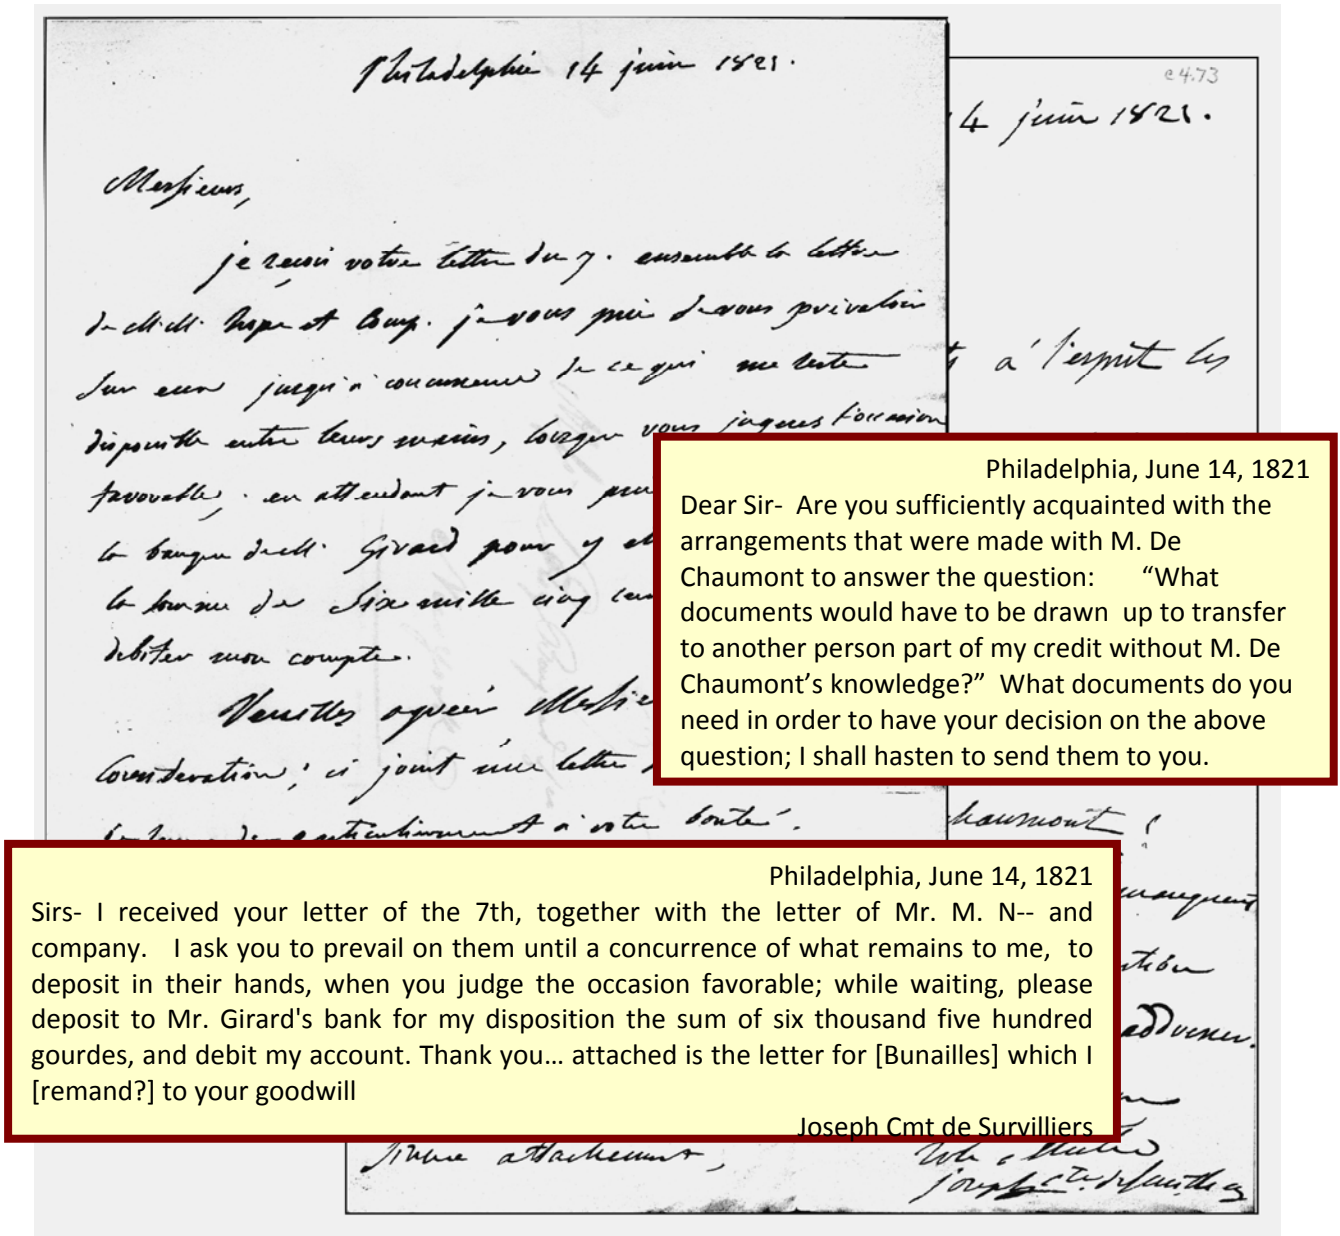 Philadelphie 14 juin 1821.
Messieurs,
je reçois votre lettre du 7. ensemble la lettre
de MM. hope et Comp. je vous prie de vous prévaloir
sur eux jusqu'à concurrence de ce qui me reste
disponible entre leurs mains, lorsque vous jugerez l'occasion
favorable; en attendant je vous
la banque de M. Girard pour y
la somme de Six mille cinq
débiter mon compte.
Veuillez agréer Messie
Considération; ci joint une lettre
particulièrement à votre bonté.
e4.73
4 juin 1821.
à l'esprit les
Philadelphia, June 14, 1821
Dear Sir- Are you sufficiently acquainted with the
arrangements that were made with M. De
Chaumont to answer the question: “What
documents would have to be drawn up to transfer
to another person part of my credit without M. De
Chaumont’s knowledge?” What documents do you
need in order to have your decision on the above
question; I shall hasten to send them to you.
haumont?
manquent
Philadelphia, June 14, 1821
Sirs- I received your letter of the 7th, together with the letter of Mr. M. N-- and
company. I ask you to prevail on them until a concurrence of what remains to me, to
deposit in their hands, when you judge the occasion favorable; while waiting, please
deposit to Mr. Girard's bank for my disposition the sum of six thousand five hundred
gourdes, and debit my account. Thank you… attached is the letter for [Bunailles] which I
[remand?] to your goodwill
Joseph Cmt de Survilliers
adresser.
sincère attachement,
joseph cte de Survilliers